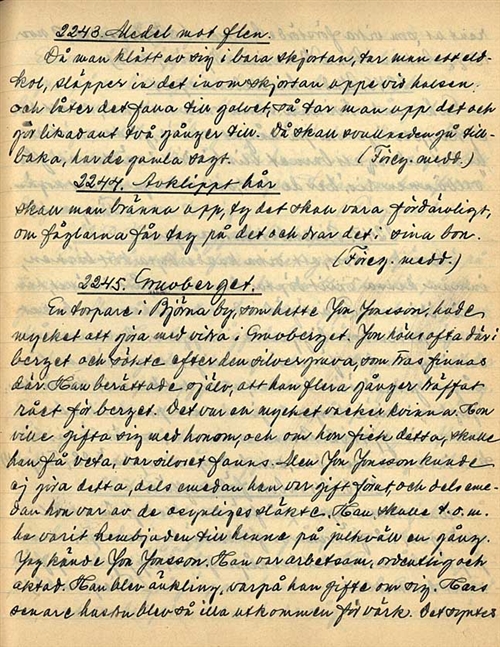 2243. Medel mot flen.
Då man klätt av sig i bara skjortan, tar man ett eld-
kol, släpper in det inom skjortan uppe vid halsen
och låter det falla till golvet, så tar man upp det och
gör likadant två gånger till. Då skall svullnaden gå till-
baka, har de gamla sagt. (Föreg. medd.)
2244. Avklippt hår
skall man bränna upp, ty det skall vara fördärvligt,
om fåglarna får tag på det och drar det i sina bon.
(Föreg. medd.)
2245. Gruvberget.
En torpare i Björna by, som hette Jon Jonsson, hade
mycket att göra med vitra i Gruvberget. Jon höus ofta där i
berget och sökte efter den silvergruva, som sas finnas
där. Han berättade själv, att han flera gånger träffat
rået för berget. Det var en mycket vacker kvinna. Hon
ville gifta sig med honom, och om hon fick detta, skulle
han få veta, var silvret fanns. Men Jon Jonsson kunde
ej göra detta, dels emedan han var gift förut, och dels eme-
dan hon var av de osynliges släkte. Han skulle t.o.m.
ha varit hembjuden till henne på julkväll en gång.
Jag kände Jon Jonsson. Han var arbetsam, ordentlig och
aktad. Han blev änkling, varpå han gifte om sig. Hans
senare hustru blev så illa utkommen för värk. Det syntes